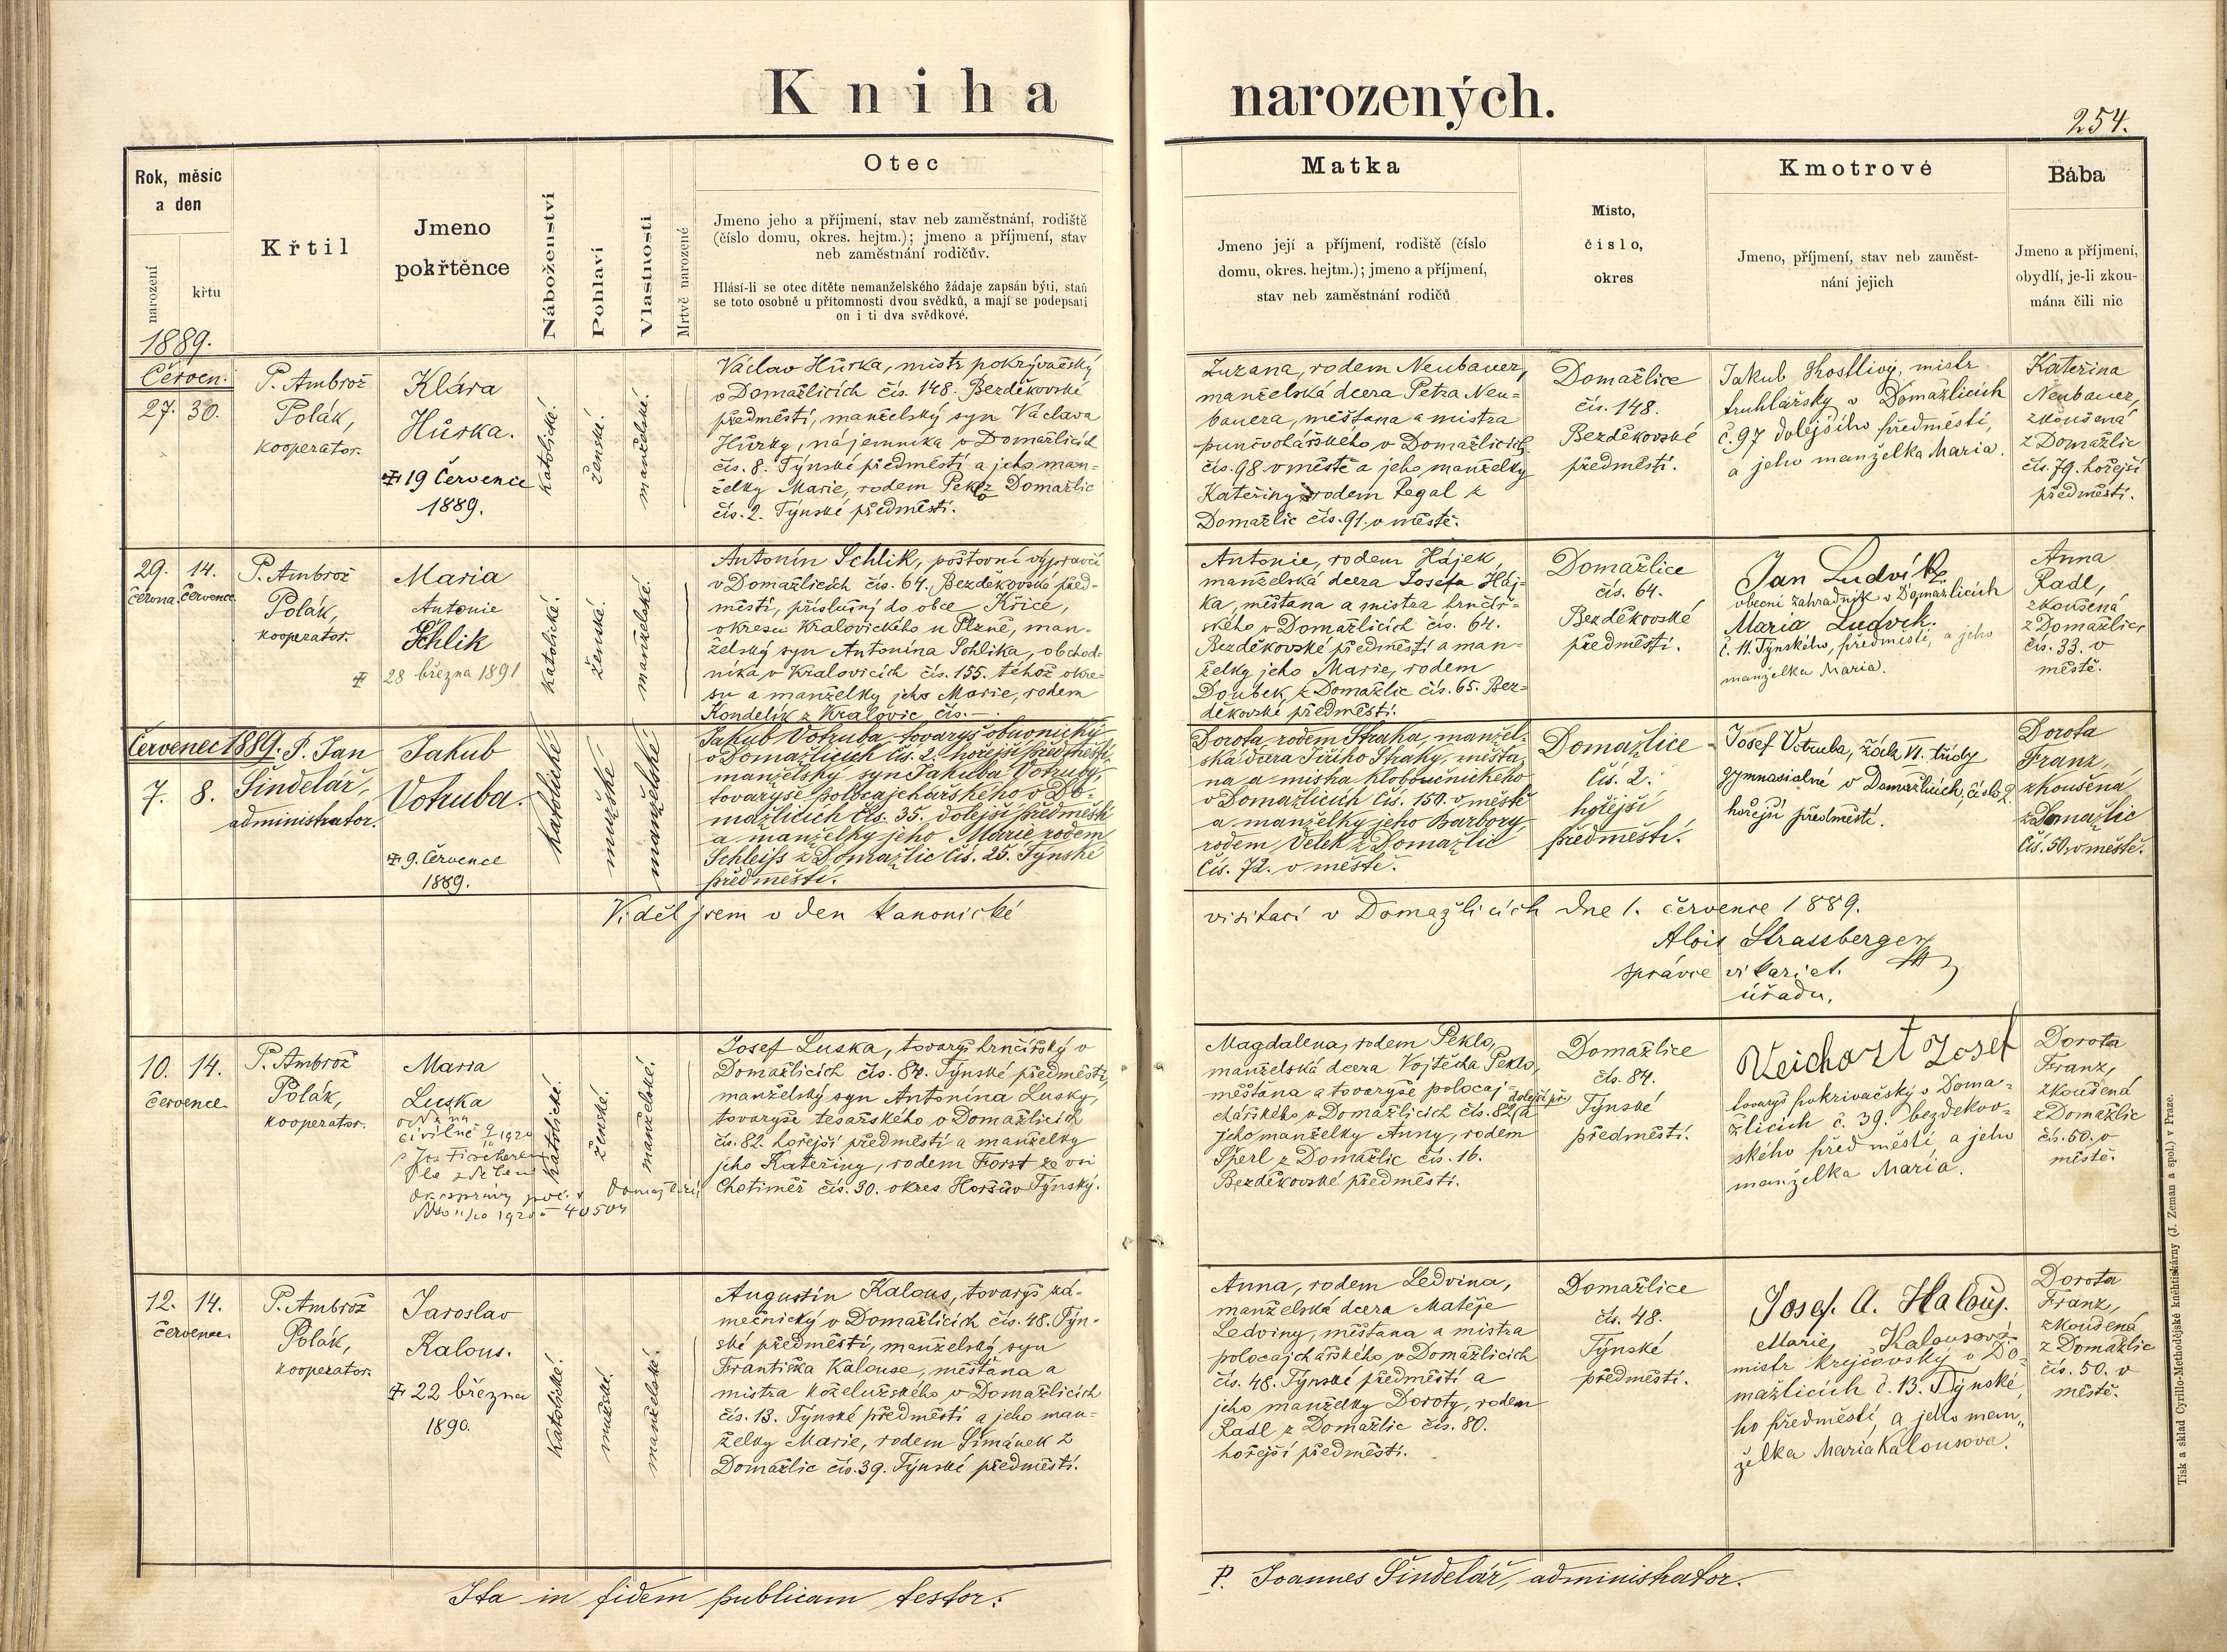 Kniha narozených.
254.
Rok, měsíc
a den
narození
křtu
Křtil
Jmeno
pokřtěnce
Náboženství
Pohlaví
Vlastnosti
Mrtvě narozené
Otec
Jmeno jeho a příjmení, stav neb zaměstnání, rodiště
(číslo domu, okres. hejtm.); jmeno a příjmení, stav
neb zaměstnání rodičův.
Hlásí-li se otec dítěte nemanželského žádaje zapsán býti, staň
se toto osobně u přítomnosti dvou svědků, a mají se podepsati
on i ti dva svědkové.
Matka
Jmeno její a příjmení, rodiště (číslo
domu, okres. hejtm.); jmeno a příjmení,
stav neb zaměstnání rodičů
Místo,
číslo,
okres
Kmotrové
Jmeno, příjmení, stav neb zaměst-
nání jejich
Bába
Jmeno a příjmení,
obydlí, je-li zkou-
mána čili nic
1889.
Červen.
27. 30.
P. Ambrož
Polák,
kooperator.
Klára
Hůrka.
19 Července
1889.
katolické.
ženské.
manželské.
Václav Hůrka, mistr pokrývačský
v Domažlicích čís. 148. Bezděkovské
předměstí, manželský syn Václava
Hůrky, nájemníka v Domažlicích
čís. 8. Týnské předměstí a jeho man-
želky Marie, rodem Peklo z Domažlic
čís. 2. Týnské předměstí.
Zuzana, rodem Neubauer,
manželská dcera Petra Neu-
bauera, měšťana a mistra
punčochářského v Domažlicích
čís. 98 v městě a jeho manželky
Kateřiny, rodem Pegal z
Domažlic čís. 91. v městě.
Domažlice
čís. 148.
Bezděkovské
předměstí.
Jakub Kostlivý, mistr
truhlářský v Domažlicích
č. 97 dolejšího předměstí,
a jeho manželka Maria.
Kateřina
Neubauer,
zkoušená
z Domažlic
čís. 79. hořejší
předměstí.
29. 14.
června. července.
P. Ambrož
Polák,
kooperator.
Maria
Antonie
Schlik
28 března 1891
katolické.
ženské.
manželské.
Antonín Schlik, poštovní výpravčí
v Domažlicích čís. 64. Bezděkovské před-
městí, příslušný do obce Křice,
okresu Kralovického u Plzně, man-
želský syn Antonína Schlika, obchod-
níka v Kralovicích čís. 155. téhož okre-
su a manželky jeho Marie, rodem
Kondelík z Kralovic čís. —.
Antonie, rodem Hájek,
manželská dcera Josefa Háj-
ka, měšťana a mistra hrnčíř-
ského v Domažlicích čís. 64.
Bezděkovské předměstí a man-
želky jeho Marie, rodem
Doubek, z Domažlic čís. 65. Bez-
děkovské předměstí.
Domažlice
čís. 64.
Bezděkovské
předměstí.
Jan Ludvík
obecní zahradník v Domažlicích
Maria Ludvík.
č. 11. Týnského, předměstí, a jeho
manželka Maria.
Anna
Radl,
zkoušená
z Domažlic,
čís. 33. v
městě.
Červenec 1889.
7. 8.
P. Jan
Šindelář,
administrátor.
Jakub
Votruba.
9. Července
1889.
katolické.
mužské
manželské.
Jakub Votruba tovaryš obuvnický
v Domažlicích čís. 2. hořejší předměstí,
manželský syn Jakuba Votruby,
tovaryše polocajchářského v Do-
mažlicích čís. 35. dolejší předměstí
a manželky jeho Marie rodem
Schleiss z Domažlic čís. 25. Týnské
předměstí.
Dorota rodem Straka, manžel-
ská dcera Jiřího Straky, měšťa-
na a mistra kloboučnického
v Domažlicích čís. 150. v městě
a manželky jeho Barbory,
rodem Velek z Domažlic
čís. 72. v městě.
Domažlice
čís. 2.
hořejší
předměstí.
Josef Votruba, žák VI. třídy
gymnasialné v Domažlicích, číslo 2.
hořejší předměstí.
Dorota
Franz,
zkoušená
z Domažlic
čís. 50. v městě.
Viděl jsem v den kanonické visitaci v Domažlicích dne 1. července 1889.
Alois Strassberger
správce vikariat.
úřadu.
10. 14.
července.
P. Ambrož
Polák,
kooperator.
Maria
Luska
civilně
1920
katolické.
ženské.
manželské.
Josef Luska, tovaryš hrnčířský v
Domažlicích čís. 84. Týnské předměstí,
manželský syn Antonína Lusky,
tovaryše tesařského v Domažlicích
čís. 82. hořejší předměstí a manželky
jeho Kateřiny, rodem Forst ze vsi
Chotiměř čís. 30. okres Horšův Týnský.
Magdalena, rodem Peklo,
manželská dcera Vojtěcha Peklo,
měšťana a tovaryše polocaj-
chářského v Domažlicích čís. 82, dolejší př. a
jeho manželky Anny, rodem
Šperl z Domažlic čís. 16.
Bezděkovské předměstí.
Domažlice
čís. 84.
Týnské
předměstí.
Veichart Josef
tovaryš pokrivačský v Doma-
žlicích č. 39. bezdekov-
ského předměstí, a jeho
manželka Maria.
Dorota
Franz,
zkoušená
z Domažlic
čís. 50. v
městě.
12. 14.
července.
P. Ambrož
Polák,
kooperator.
Jaroslav
Kalous.
22 března
1890.
katolické.
mužské.
manželské.
Augustin Kalous, tovaryš zá-
mečnický v Domažlicích čís. 48. Týn-
ské předměstí, manželský syn
Františka Kalouse, měšťana a
mistra koželužského v Domažlicích
čís. 13. Týnské předměstí a jeho man-
želky Marie, rodem Šimánek z
Domažlic čís. 39. Týnské předměstí.
Anna, rodem Ledvina,
manželská dcera Matěje
Ledviny, měšťana a mistra
polocajchářského, v Domažlicích
čís. 48. Týnské předměstí a
jeho manželky Doroty, rodem
Radl z Domažlic čís. 80.
hořejší předměstí.
Domažlice
čís. 48.
Týnské
předměstí.
Josef A. Kalous.
Marie, Kalousová
mistr krejčovský v Do-
mažlicích č. 13. Týnské,
ho předměstí, a jeho man„
želka Maria Kalousova.
Dorota
Franz,
zkoušená
z Domažlic
čís. 50. v
městě.
Ita in fidem publicam testor: P. Joannes Šindelář, administrator.
Tisk a sklad Cyrillo-Methodějské knihtiskárny (J. Zeman a spol.) v Praze.